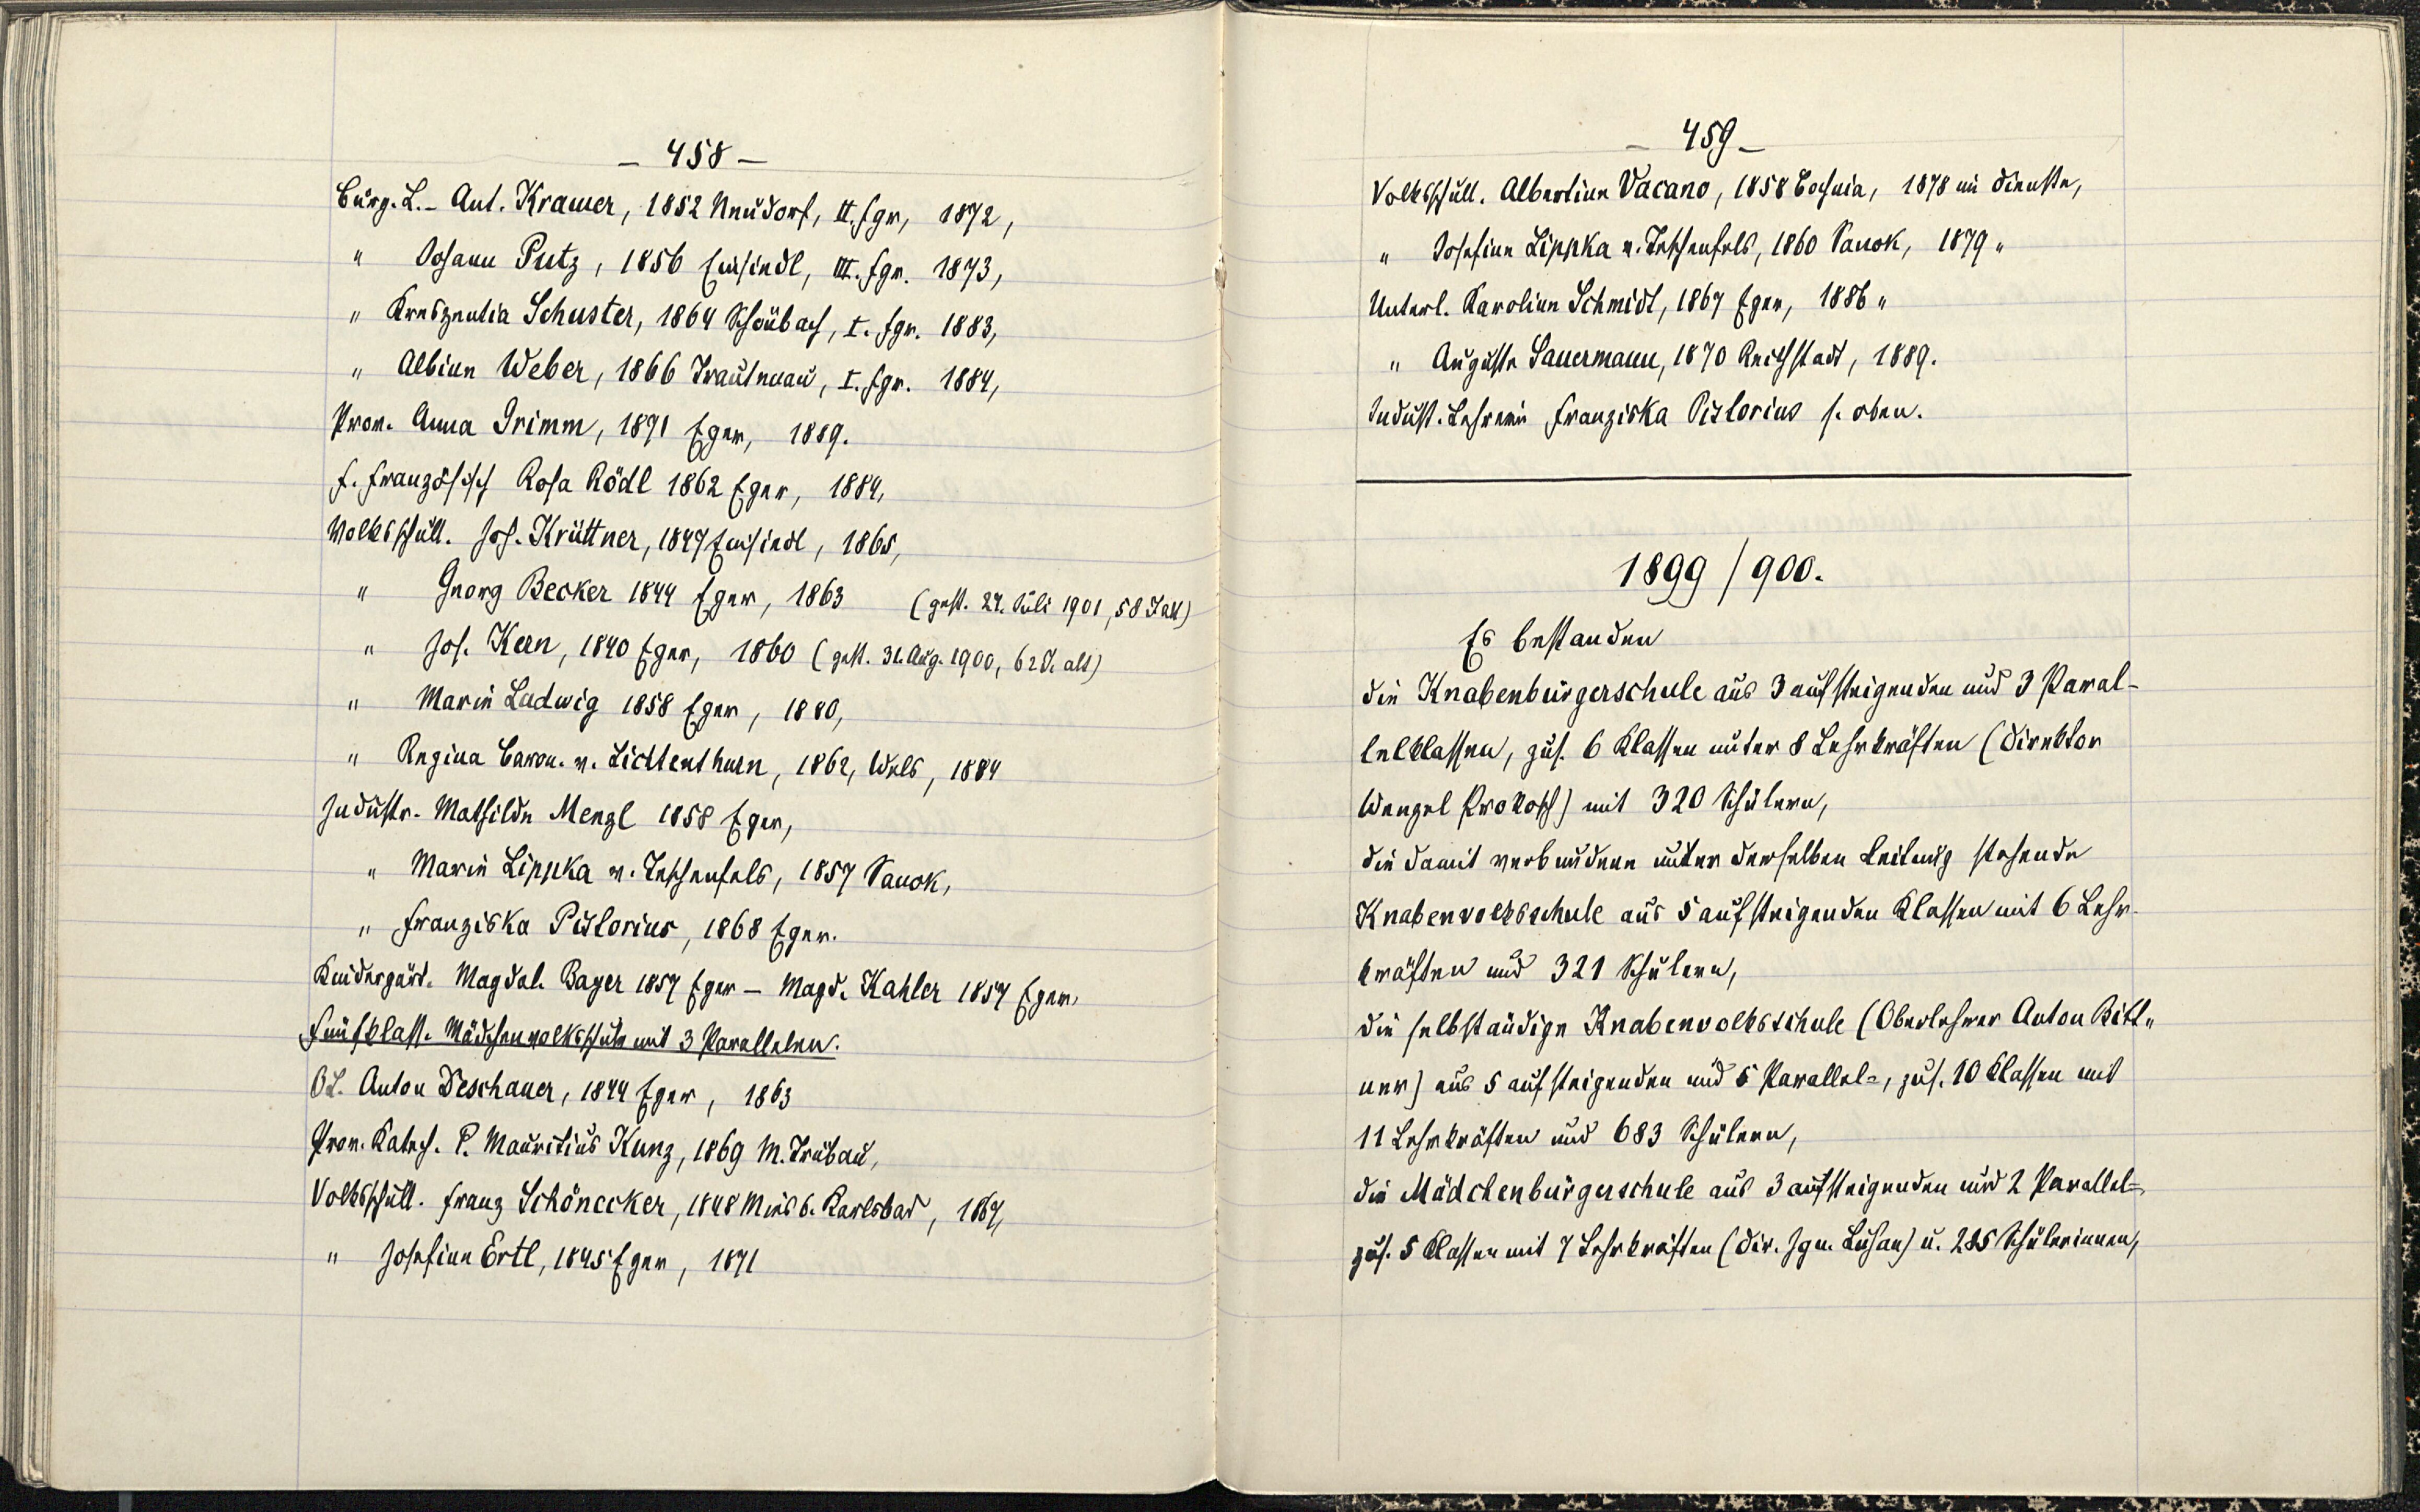 – 458 –
Bürg. L. – Ant. Kramer, 1852 Neudorf, II. Fgr, 1872,
" Johann Putz, 1856 Einsiedl, III. Fgr. 1873,
" Kreszentia Schuster, 1864 Schönbach, I. Fgr. 1883,
" Albine Weber, 1866 Trautenau, I. Fgr. 1884,
Prov. Anna Grimm, 1871 Eger, 1889.
f. Französisch Rosa Rödl 1862 Eger, 1884,
Volksschull. Jos. Krüttner, 1847 Einsiedl, 1865,
" Georg Becker 1844 Eger, 1863 (gest. 24. Juli 1901, 58 J alt)
" Jos. Kern, 1840 Eger, 1860 (gest. 31. Aug. 1900, 62 J. alt)
" Marie Ladwig 1858 Eger, 1880,
" Regina Baron. v. Lichtenthurn, 1862, Wels, 1884
Industr. Mathilde Mengl 1858 Eger,
" Marie Lippka v. 1857 Sanok,
" Franziska Pistorius, 1868 Eger.
Kindergärt. Magdal. Bayer 1857 Eger – Magd. Kahler 1857 Eger,
Fünfklass. Mädchenvolksschule mit 3 Parallelen.
OL. Anton Deschauer, 1844 Eger, 1863
Prov. Katech. P. Mauritius Kunz, 1869 M. Trübau,
Volksschull. Franz Schönecker, 1848 b. Karlsbad, 1867,
" Josefine Ertl, 1845 Eger, 1871
– 459 –
Volksschull. Albertine Vacano, 1858 Bochnia, 1878 im Dienste,
" Josefine Lippka v. 1860 Sanok, 1879 "
Unterl. Karoline Schmidt, 1867 Eger, 1886 "
" Auguste Sauermann, 1870 Reichstadt, 1889.
Indust. Lehrerin Franziska Pistorius s. oben.
1899/900.
Es bestanden
die Knabenbürgerschule aus 3 aufsteigenden und 3 Paral-
lelklassen, zus. 6 Klassen unter 8 Lehrkräften (Direktor
Wenzel Prokosch) mit 320 Schülern,
die damit verbundene unter derselben Leitung stehende
Knabenvolksschule aus 5 aufsteigenden Klassen mit 6 Lehr-
kräften und 321 Schülern,
die selbständige Knabenvolksschule (Oberlehrer Anton Bitt-
ner) aus 5 aufsteigenden und 5 Parallel-, zus. 10 Klassen mit
11 Lehrkräften und 683 Schülern,
die Mädchenbürgerschule aus 3 aufsteigenden und 2 Parallel-,
zus. 5 Klassen mit 7 Lehrkräften (Dir. Ign. Lusar) u. 285 Schülerinnen,